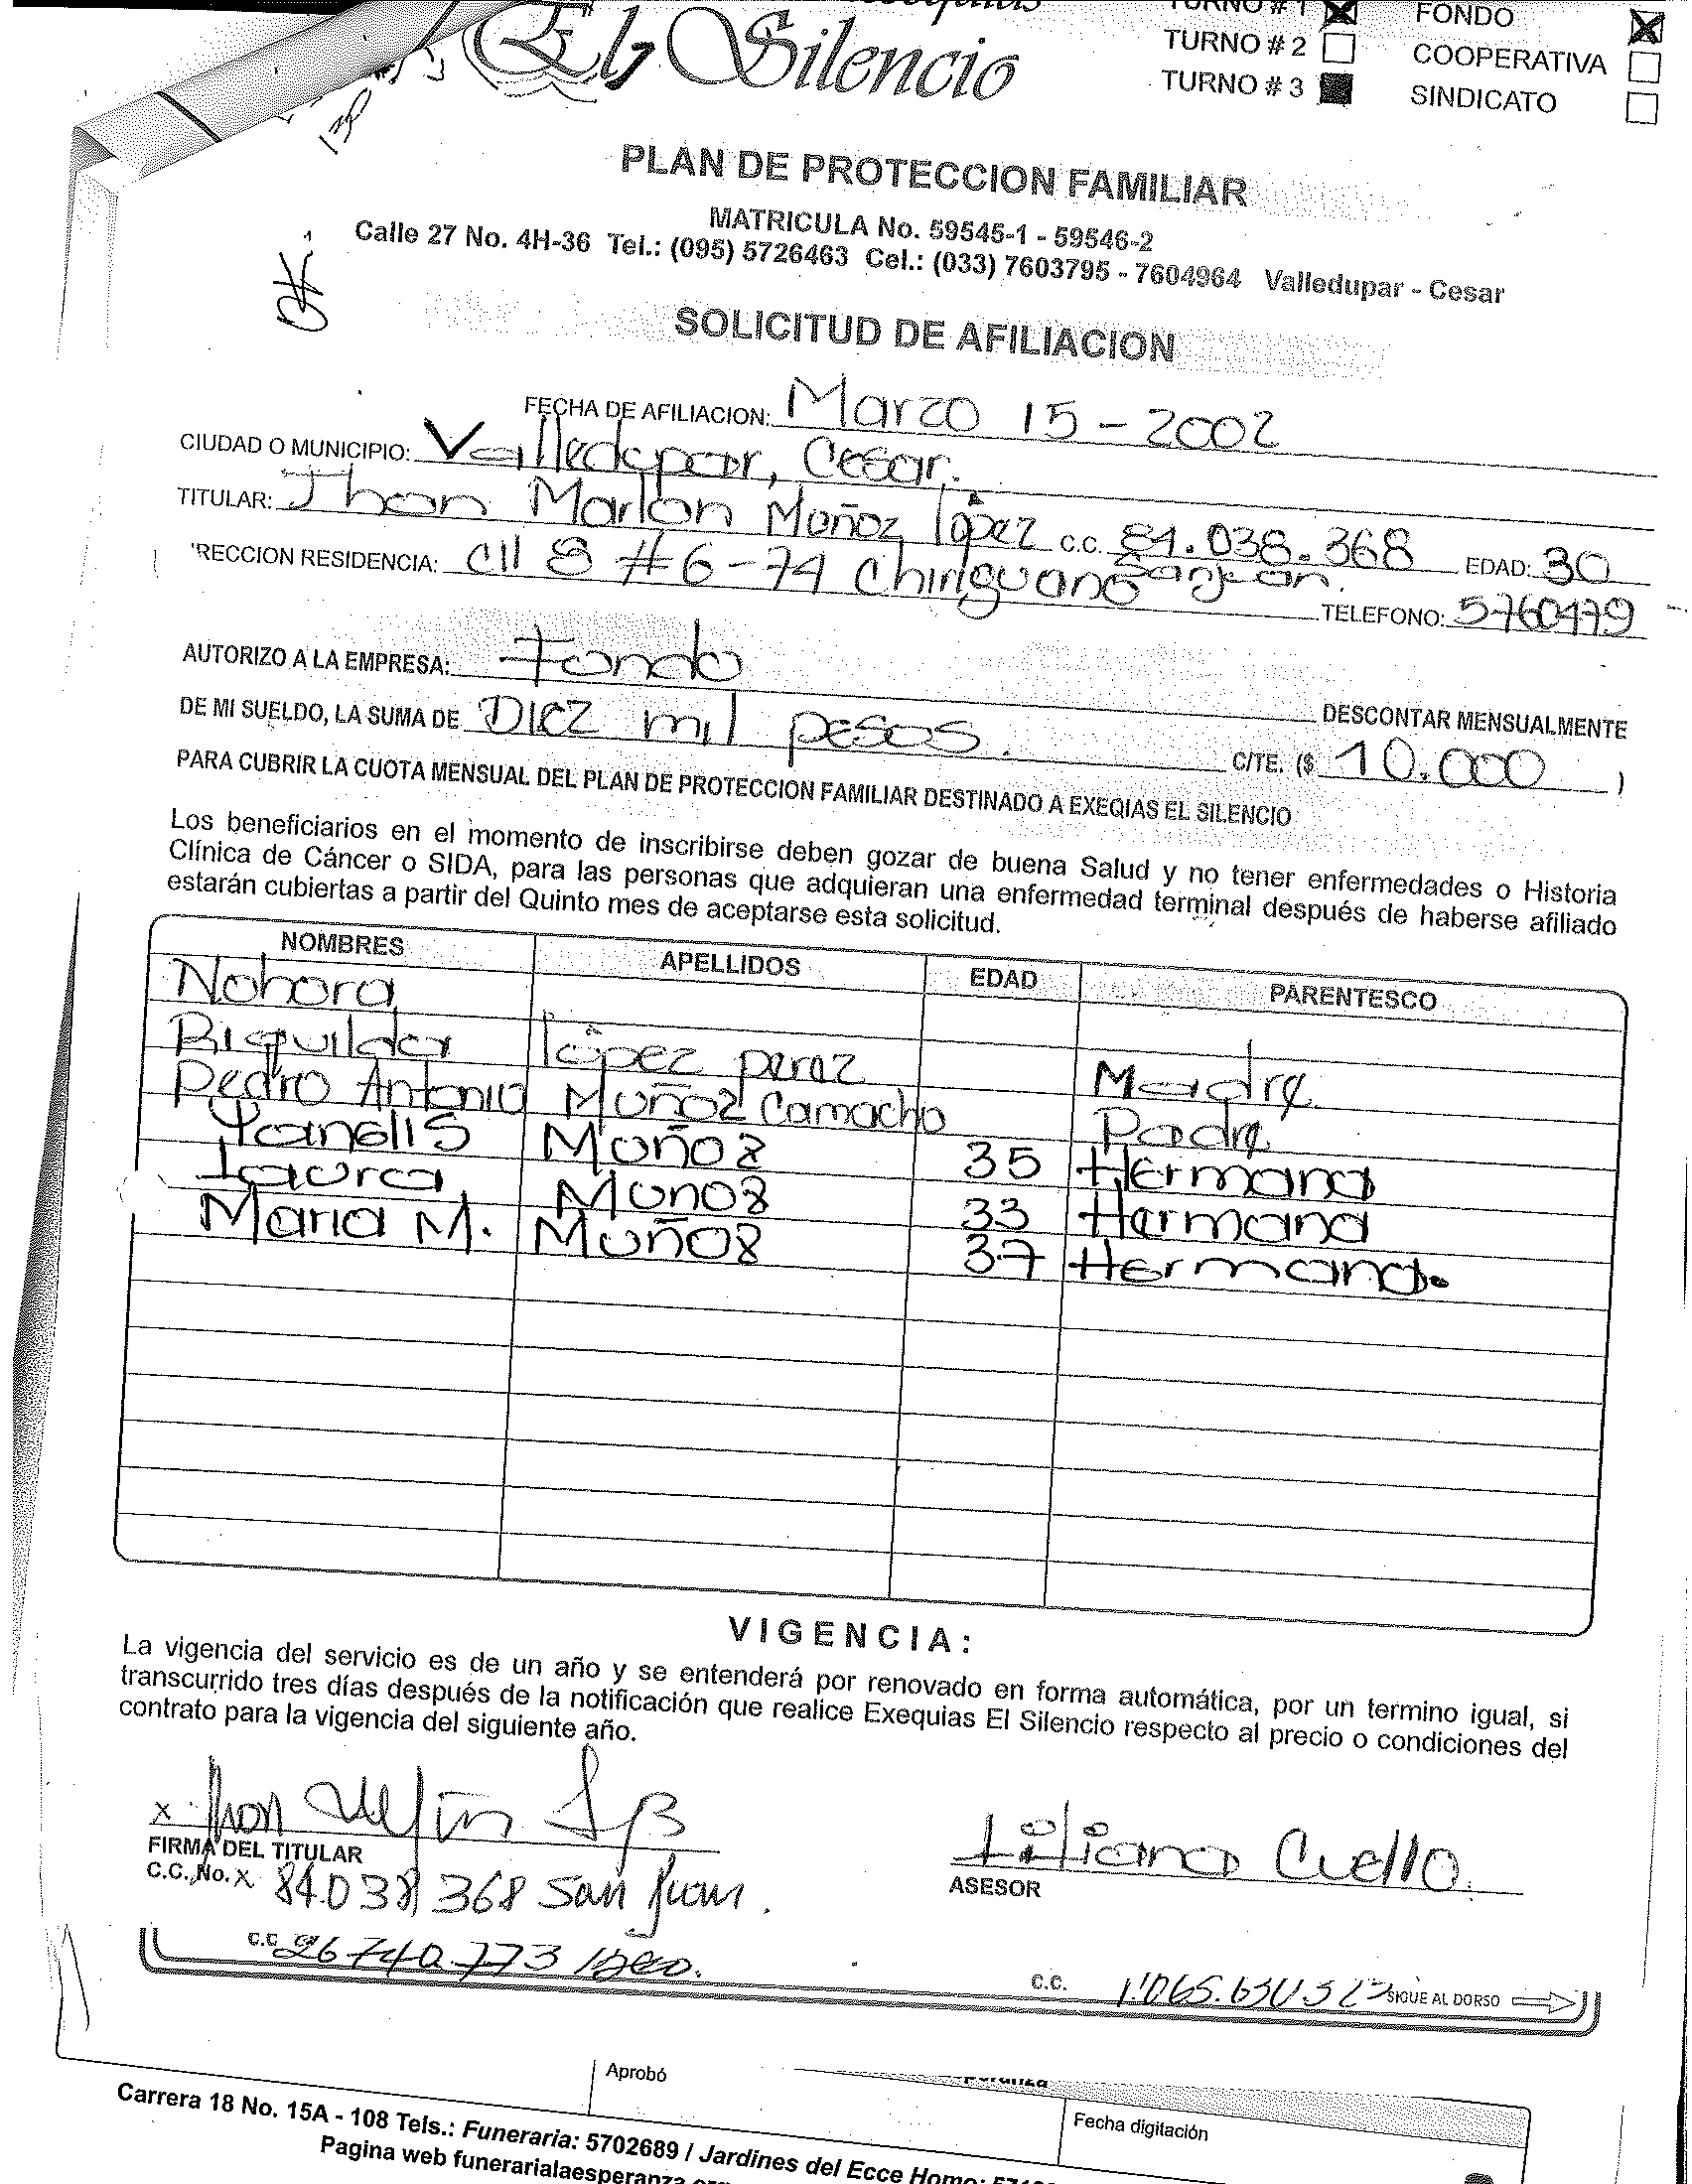 El Silencio
TURNO # 1 FONDO
TURNO # 2 COOPERATIVA
TURNO # 3 SINDICATO
PLAN DE PROTECCION FAMILIAR
MATRICULA No. 59545-1 - 59546-2
Calle 27 No. 4H-36 Tel.: (095) 5726463 Cel.: (033) 7603795 - 7604964 Valledupar - Cesar
SOLICITUD DE AFILIACION
FECHA DE AFILIACION: Marzo 15 - 2002
CIUDAD O MUNICIPIO: Valledupar, Cesar.
TITULAR: Jhon Marlon Muñoz lópez C.C. 84.038.368 EDAD: 30
San Juan.
RECCION RESIDENCIA: Cll 8 # 6-74 Chiriguano TELEFONO: 5760479
AUTORIZO A LA EMPRESA: Fondo DESCONTAR MENSUALMENTE
DE MI SUELDO, LA SUMA DE Diez mil pesos. C/TE. ($ 10.000 )
PARA CUBRIR LA CUOTA MENSUAL DEL PLAN DE PROTECCION FAMILIAR DESTINADO A EXEQIAS EL SILENCIO
Los beneficiarios en el momento de inscribirse deben gozar de buena Salud y no tener enfermedades o Historia
Clínica de Cáncer o SIDA, para las personas que adquieran una enfermedad terminal después de haberse afiliado
estarán cubiertas a partir del Quinto mes de aceptarse esta solicitud.
NOMBRES APELLIDOS EDAD PARENTESCO
Nohora
Riquilda lópez perez Madre
Pedro Antonio Muñoz Camacho Padre
Yanelis Muñoz 35 Hermana
Laura Muñoz 33 Hermana
Maria M. Muñoz 37 Hermana.
VIGENCIA:
La vigencia del servicio es de un año y se entenderá por renovado en forma automática, por un termino igual, si
transcurrido tres días después de la notificación que realice Exequias El Silencio respecto al precio o condiciones del
contrato para la vigencia del siguiente año.
x Jhon
FIRMA DEL TITULAR
C.C. No. x 84038368 San Juan.
Liliana Cuello.
ASESOR
C.C. 26740.773
C.C.
SIGUE AL DORSO
Aprobó
Fecha digitación
Carrera 18 No. 15A - 108 Tels.: Funeraria: 5702689 / Jardines del Ecce Homo:
Pagina web